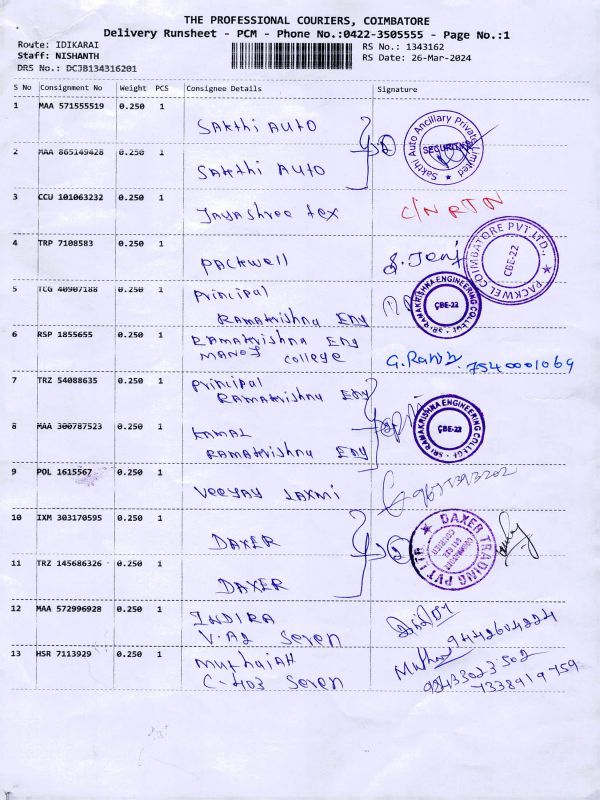 THE PROFESSIONAL COURIERS, COIMBATORE
Delivery Runsheet - PCM - Phone No.:0422-3505555 - Page No.:1
Route: IDIKARAI RS No.: 1343162
Staff: NISHANTH RS Date: 26-Mar-2024
DRS No.: DCJB134316201
S No Consignment No Weight PCS Consignee Details Signature
1 MAA 571555519 0.250 1 Sakthi Auto
Sakthi Auto Ancillary Private Limited
SECURITY
2 MAA 865149428 0.250 1 Sakthi Auto
3 CCU 101063232 0.250 1 Jayashree tex
4 TRP 7108583 0.250 1 Packwell
PACKWEL COIMBATORE PVT LTD.,
CBE-22
5 TCG 40907188 0.250 1 Principal
Ramakrishna Eng
SRI RAMAKRISHNA ENGINEERING COLLEGE
CBE-22
6 RSP 1855655 0.250 1 Ramakrishna Eng
Manoj College
7540001069
7 TRZ 54088635 0.250 1 Principal
Ramakrishna Eng
8 MAA 300787523 0.250 1 Kamal
Ramakrishna Eng
SRI RAMAKRISHNA ENGINEERING COLLEGE
CBE-22
9 POL 1615567 0.250 1 Veeyay Laxmi
10 IXM 303170595 0.250 1 DAXER
DAXER TRADING PVT LTD
11 TRZ 145686326 0.250 1 DAXER
12 MAA 572996928 0.250 1 INDIRA
V-A2 Seren
9442604224
13 HSR 7113929 0.250 1 Muthaiah
C-403 Seren
7338919759